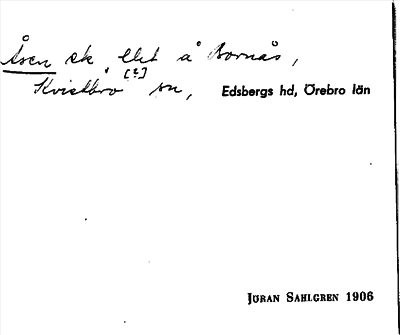 Åsen sk. [?] å Bornås,
Kvistbro sn, Edsbergs hd, Örebro län
JÖRAN SAHLGREN 1906